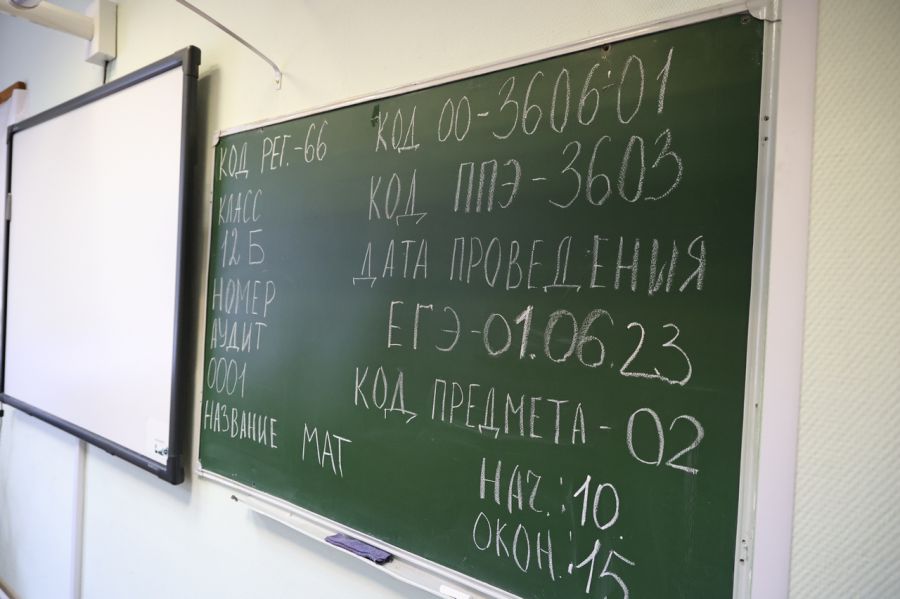 КОД РЕГ.-66
КЛАСС
12 Б
НОМЕР
АУДИТ
0001
НАЗВАНИЕ МАТ
КОД ОО-3606:01
КОД ППЭ-3603
ДАТА ПРОВЕДЕНИЯ
ЕГЭ-01.06.23
КОД ПРЕДМЕТА-02
НАЧ.:10.
ОКОН.:15